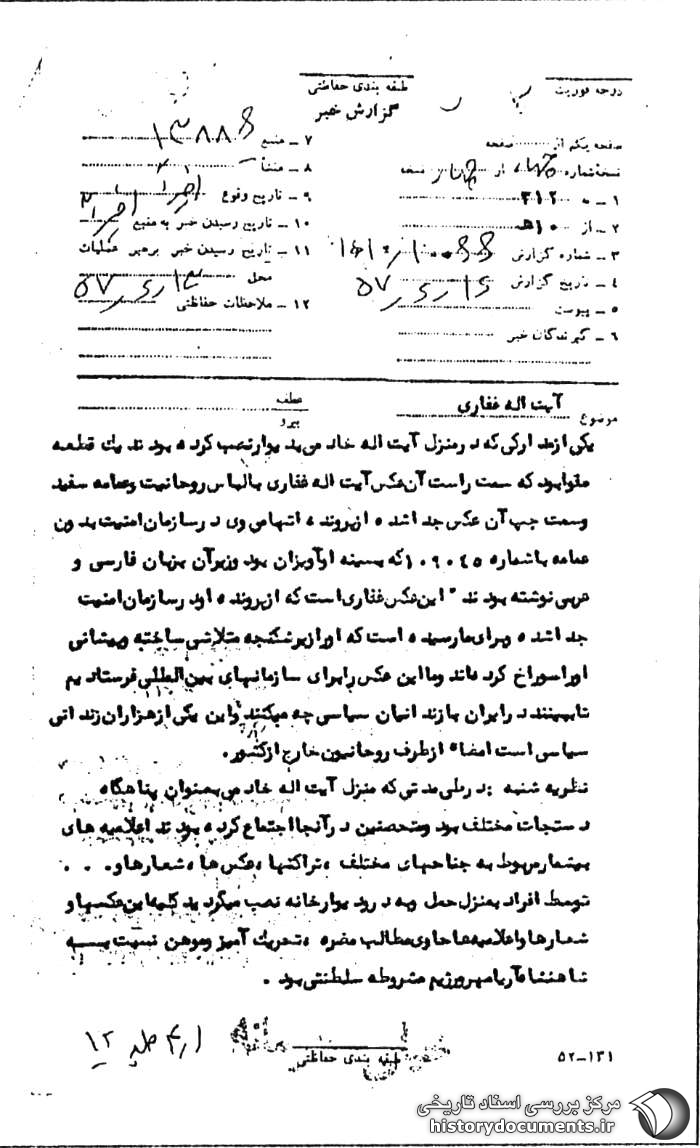 درجه فوریت
طبقه بندی حفاظتی
گزارش خبر
صفحه یکم از صفحه
نسخه شماره چهار از چهار نسخه
۱ - به ۳۱۲
۲ - از ۱۰هـ
۳ - شماره گزارش
۴ - تاریخ گزارش
۵ - پیوست
۶ - گیرندگان خبر
۷ - منبع ۱۳۸۸۸
۸ - منشأ
۹ - تاریخ وقوع اخیراً
۱۰ - تاریخ رسیدن خبر به منبع اخیراً
۱۱ - تاریخ رسیدن خبر برهبر عملیات
محل
۱۲ - ملاحظات حفاظتی
موضوع آیت اله غفاری
عطف
پیرو
یکی از مدارکی که در منزل آیت اله خادمی بدیوار نصب کرده بودند یك قطعه
مقوا بود که سمت راست آن عکس آیت اله غفاری با لباس روحانیت وعمامه سفید
وسمت چپ آن عکس جدا شده از پرونده اتهامی وی در سازمان امنیت بدون
عمامه با شماره ۱۰۹۰۴۵ که بسینه او آویزان بود وزیر آن بزبان فارسی و
عربی نوشته بودند " این عکس غفاری است که از پرونده او در سازمان امنیت
جدا شده وبرای ما رسیده است که او را زیر شکنجه متلاشی ساخته وپیشانی
او را سوراخ کرده‌اند وما این عکس را برای سازمانهای بین‌المللی فرستادیم
تا ببینند در ایران با زندانیان سیاسی چه میکنند واین یکی از هزاران زندانی
سیاسی است امضاء از طرف روحانیون خارج از کشور.
نظریه شنبه : در طی مدتی که منزل آیت اله خادمی بعنوان پناهگاه
دستجات مختلف بود ومتحصنین در آنجا اجتماع کرده بودند اعلامیه های
بیشمار مربوط به جناحهای مختلف ، تراکتها ، عکس ها ، شعارها و. . .
توسط افراد بمنزل حمل وبه در ودیوار خانه نصب میگردید کلیه این عکسها و
شعارها واعلامیه‌ها حاوی مطالب مضره ، تحریك آمیز وموهن نسبت به
شاهنشاه آریامهر ورژیم مشروطه سلطنتی بود .
طبقه بندی حفاظتی
۵۲-۱۳۱
مرکز بررسی اسناد تاریخی
historydocuments.ir